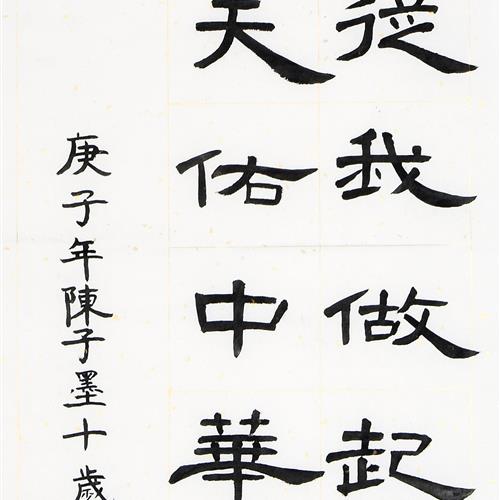 從我做起
天佑中華
庚子年陳子墨十歲